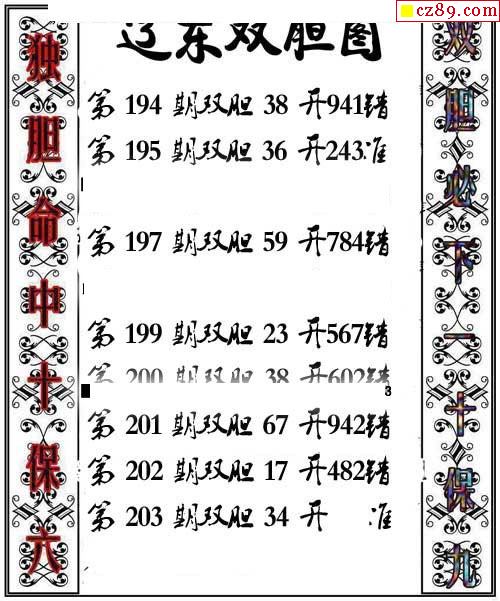 cz89.com
辽东双胆图
独胆命中十保六
双胆必下一十保九
第 194 期双胆 38 开941错
第 195 期双胆 36 开243准
第 197 期双胆 59 开784错
第 199 期双胆 23 开567错
第 200 期双胆 38 开602错
3
第 201 期双胆 67 开942错
第 202 期双胆 17 开482错
第 203 期双胆 34 开 准